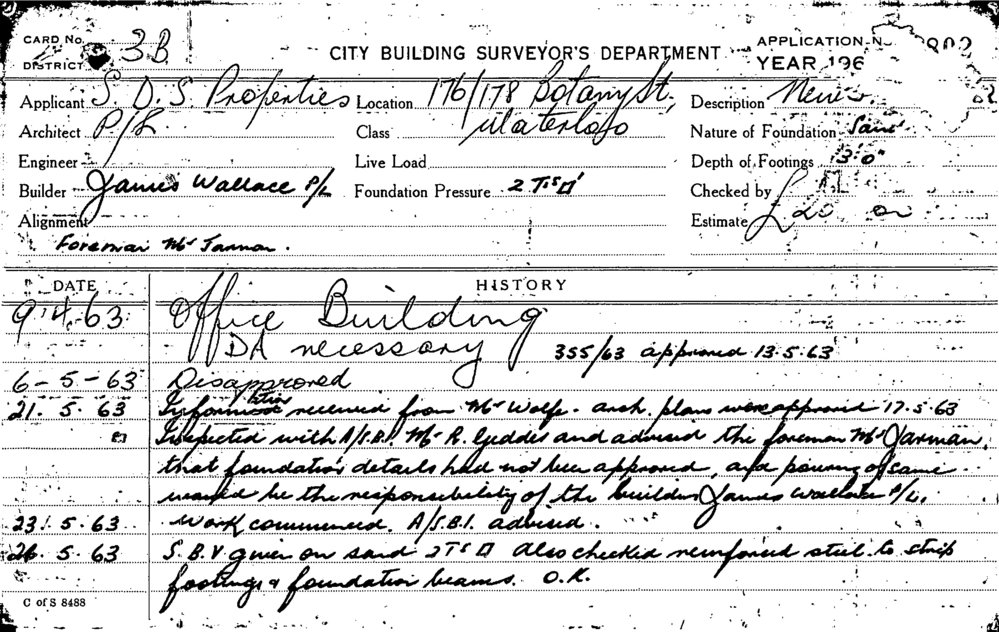 CARD No. 3B
DISTRICT
CITY BUILDING SURVEYOR'S DEPARTMENT
APPLICATION No. 802
YEAR 196
Applicant S. D. S. Properties
Location 176/178 Botany St.,
Description New
Architect P/L
Class Waterloo
Nature of Foundation Sand
Engineer
Live Load
Depth of Footings 3'0"
Builder James Wallace P/L
Foundation Pressure 2 Ts □'
Checked by
Alignment
Estimate £20
Foreman Mr Jarman.
DATE HISTORY
9.4.63 Office Building
DA necessary 355/63 approved 13.5.63
6-5-63 Disapproved
21.5.63 Information received from Mr Wolfe. arch. plans were approved 17.5.63
Inspected with A/S.B.I. Mr R. Geddes and advised the foreman Mr Jarman,
that foundation details had not been approved, and pouring of same
would be the responsibility of the builder James Wallace P/L.
23.5.63 Work commenced. A/S.B.I. advised.
26.5.63 S.B.V given on sand 2 Ts □ also checked reinforced steel to strip
footings & foundation beams. O.K.
C of S 8488